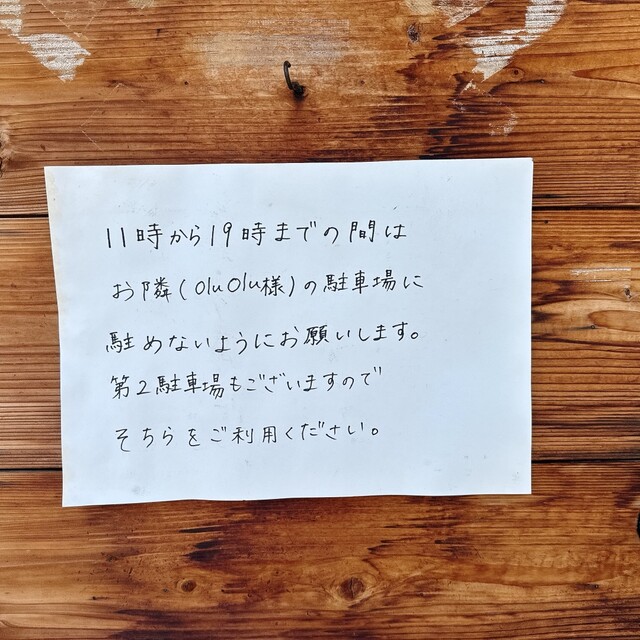 11時から19時までの間は
お隣(OluOlu様)の駐車場に
駐めないようにお願いします。
第2駐車場もございますので
そちらをご利用ください。